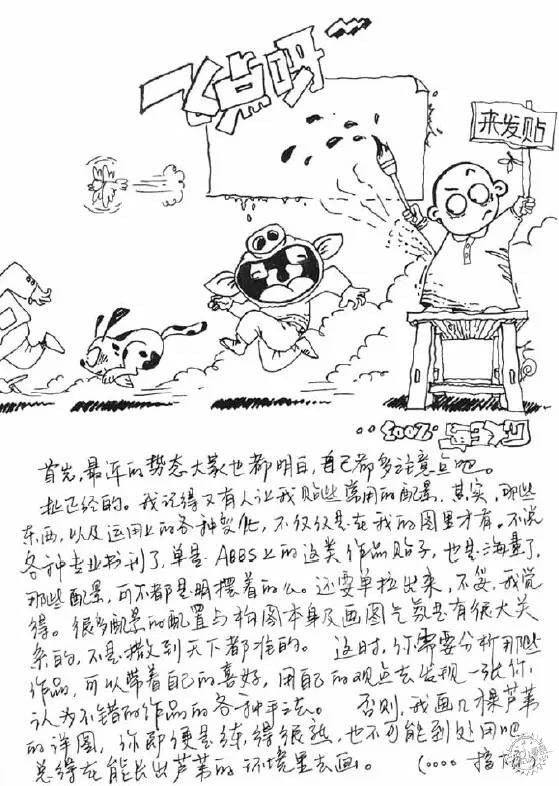 一点呀
来发贴
首先，最近的势态大家也都明白，自己都多注意点吧。
扯正经的。我记得又有人让我贴些常用的配景，其实，那些
东西，以及运用上的各种变化，不仅仅是在我的图里才有。不说
各种专业书刊了，单是ABBS上的这类作品贴子，也是海量了，
那些配景，可不都是明摆着的么。还要单拉出来，不妥，我觉
得。很多配景的配置与构图本身及画图气氛是有很大关
系的，不是撒到天下都准的。这时，你需要分析那些
作品，可以带着自己的喜好，用自己的观点去发现一张你
认为不错的作品的各种手法。否则，我画几棵芦苇
的详图，你即便是练得很熟，也不可能到处用吧
总得在能长出芦苇的环境里去画。（····